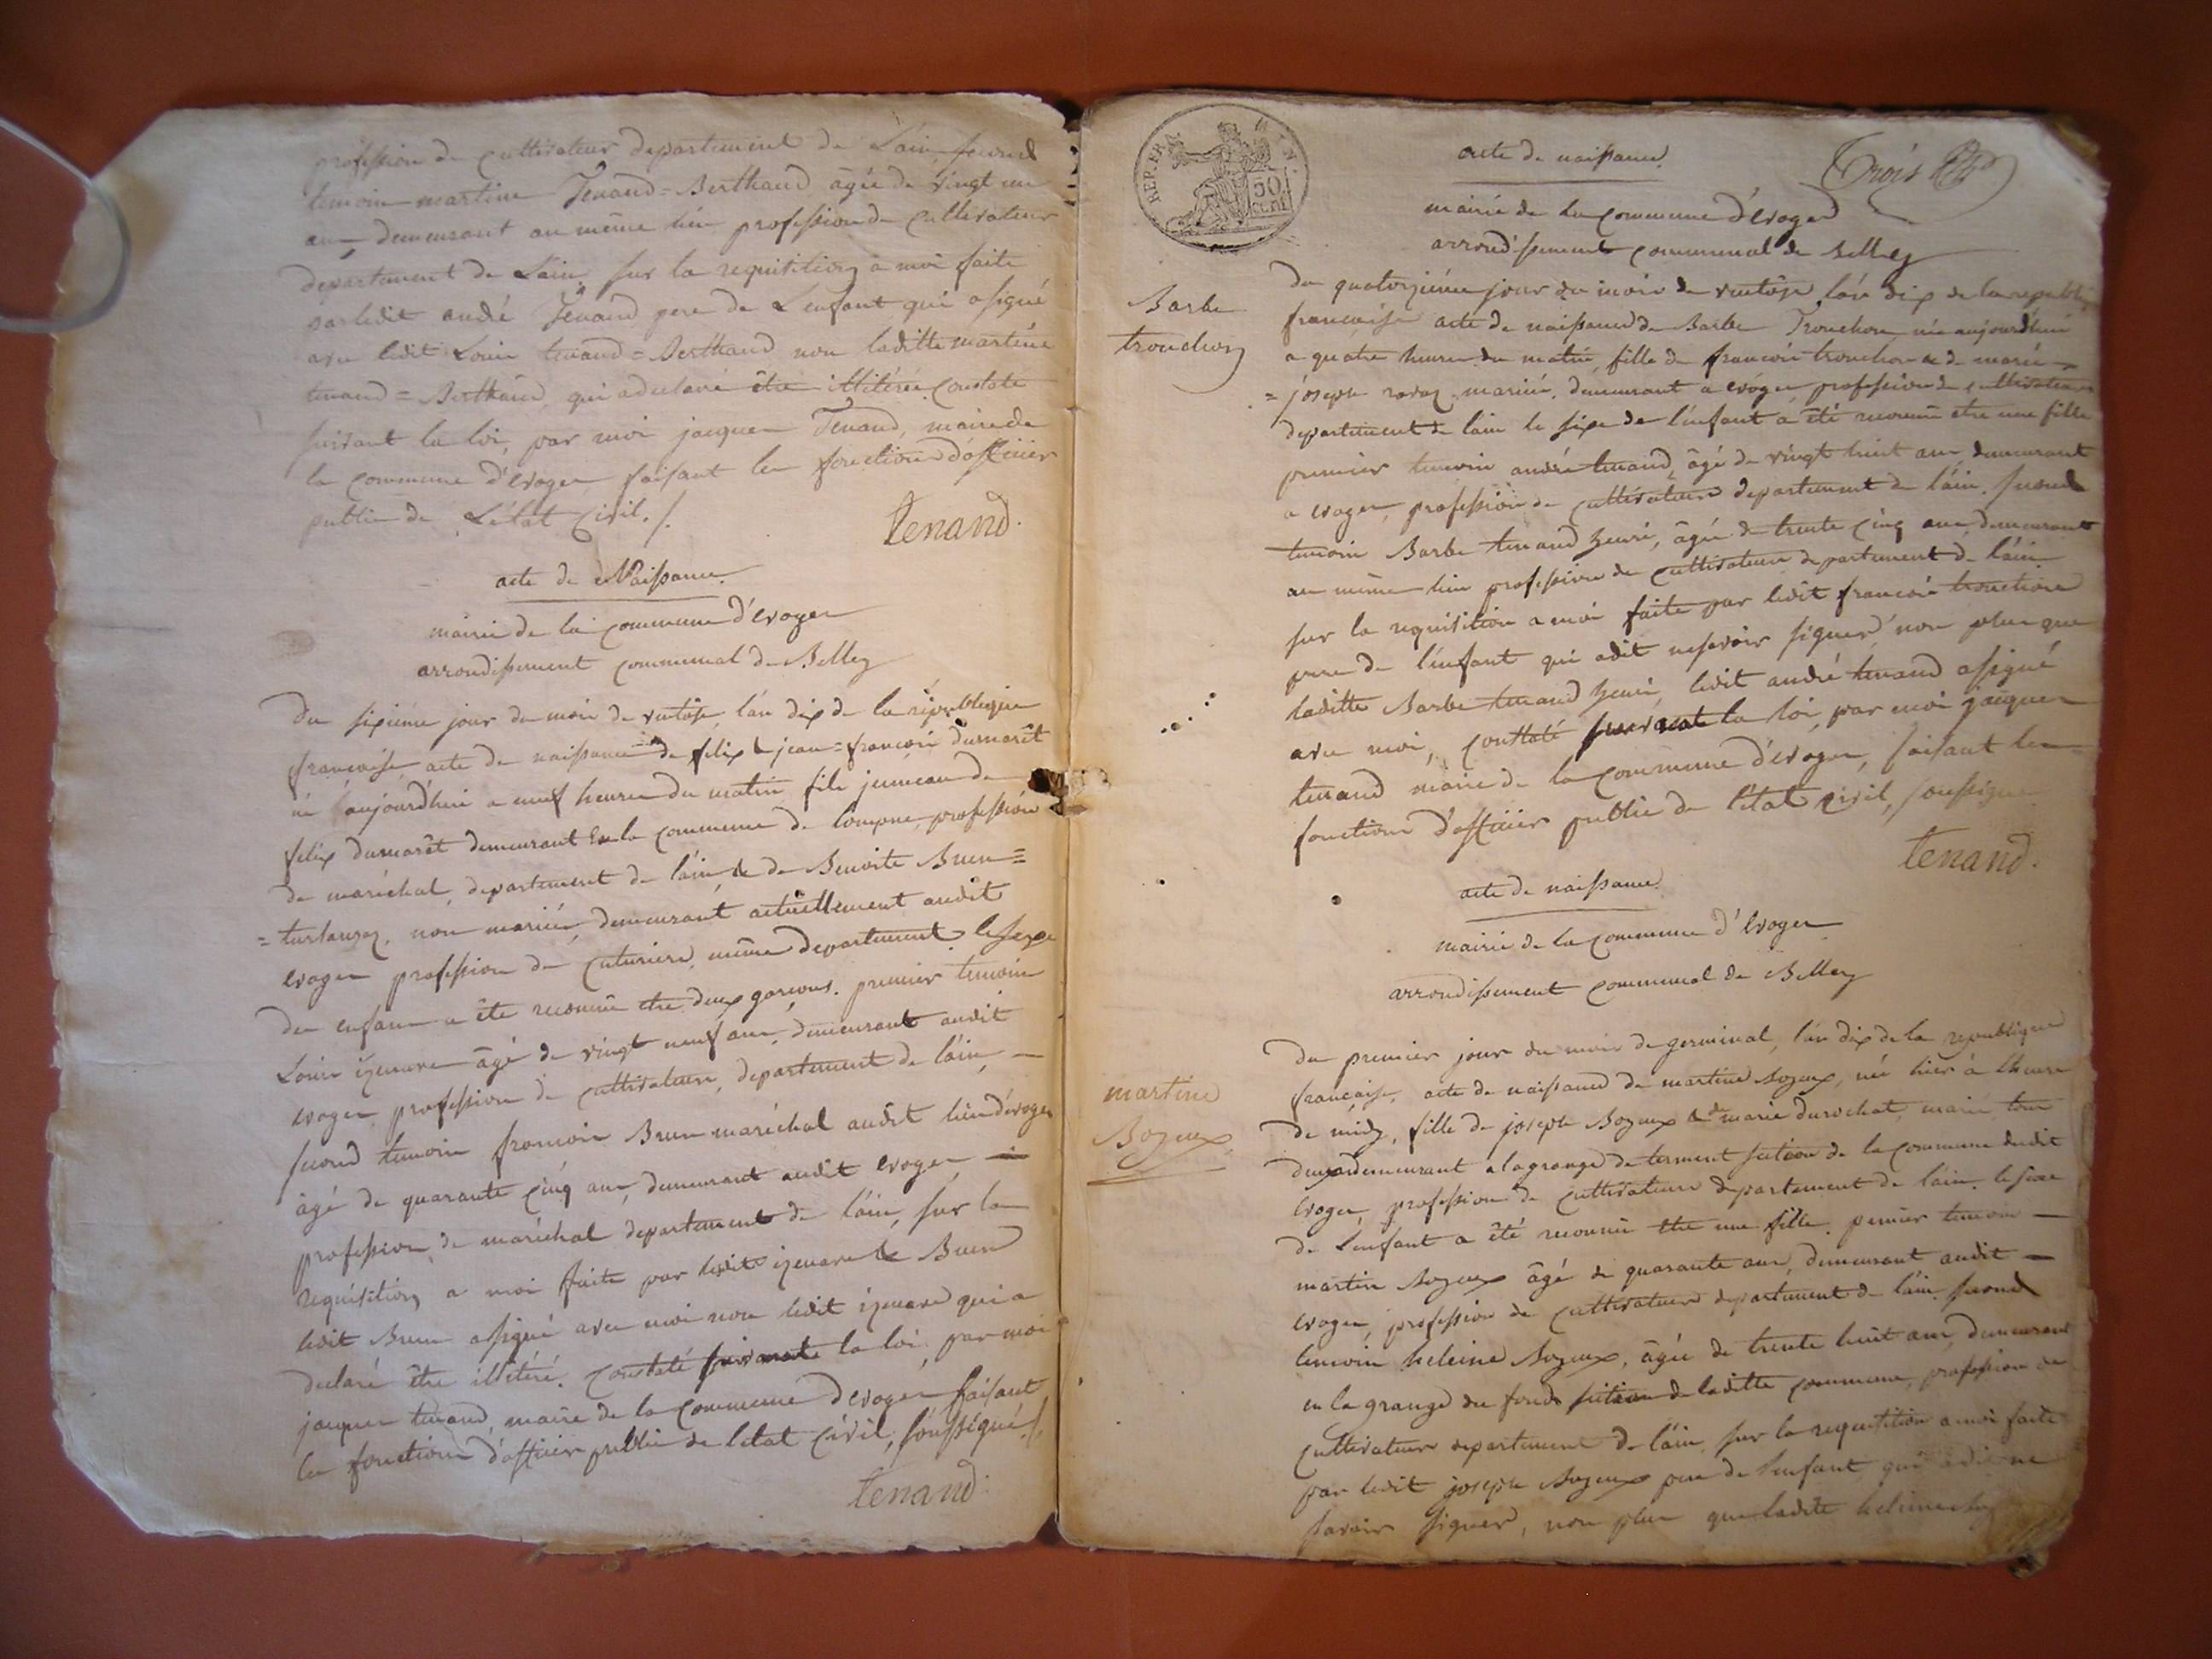 profession de cultivateur departement de Lain, second
temoin martine Tenand=Berthaud âgée de vingt un
ans, demeurant au même lieu profession de cultivateur
departement de Lain, sur la requisition a moi faite
par ledit andré Tenand pere de L'enfant qui a signé
avec ledit Louis tenand=Berthaud non laditte martine
tenand=Berthaud, qui a declaré être illitérée. Constaté
suivant la loi, par moi jacques Tenand, maire de
la commune d'evoges faisant les fonctions d'officier
public de L'état civil./.
tenand.
acte de Naissance.
mairie de la commune d'evoges
arrondissement communal de Belley
Du sixième jour du mois de ventôse l'an dix de la république
française, acte de naissance de felix & jean=francois dumarêt
né aujourd'hui a neuf heures du matin fils jumeau de
felix dumarêt demeurant en la commune de lompne, profession
de maréchal, departement de l'ain, & de Benoite Brun=
non mariée, demeurant actuellement audit
evoges profession de cuturière, même departement. le sexe
des enfans a été reconnu etre deux garçons. premier temoin
Louis âgé de vingt neuf ans, demeurant audit
evoges profession de cultivateur, departement de l'ain, –
second temoin francois Brun maréchal audit lieu d'evoges
âgé de quarante cinq ans, demeurant audit evoges, –
profession de maréchal departement de l'ain, sur la
requisition a moi faite par ledit & Brun
ledit Brun a signé avec moi non ledit qui a
declaré être illitéré. Constaté suivant la loi, par moi
jacques tenand, maire de la commune d'evoges faisant
les fonctions d'officier public de letat civil, soussigné./.
tenand.
REP. FR
50
CEN
acte de naissance.
Trois
mairie de la commune d'evoges
arrondissement communal de Belley
Barbe
tronchon
Du quatorzième jour du mois de ventôse l'an dix de la republique
française acte de naissance de Barbe Tronchon née aujourd'hui
a quatre heures du matin, fille de francois tronchon & de marie
=joseph ravaz mariés, demeurant a evoges, profession de cultivateurs
departement de l'ain le sexe de l'enfant a été reconnu etre une fille
premier temoin andré tenand, âgé de vingt huit ans demeurant
a evoges, profession de cultivateur departement de l'ain. second
temoin Barbe tenand âgée de trente cinq ans, demeurant
au même lieu profession de cultivateur departement de l'ain
sur la requisition a moi faite par ledit francois tronchon
pere de l'enfant qui a dit ne savoir signer non plus que
laditte Barbe tenand ledit andré tenand a signé
avec moi, Constaté suivant la loi, par moi jacques
tenand maire de la commune d'evoges, faisant les
fonctions d'officier public de l'état civil, soussigné
tenand.
acte de naissance.
mairie de la commune d'evoges
arrondissement communal de Belley
martine
Bozeux
Du premier jour du mois de germinal, l'an dix de la republique
française, acte de naissance de martine Bozeux, née hier à lheure
de midy, fille de joseph Bozeux & de marie durochat, mariés tous
deux demeurant a la grange de terment section de la commune dudit
evoges, profession de cultivateurs departement de l'ain. le sexe
de l'enfant a été reconnu etre une fille. premier temoin –
martin Bozeux âgé de quarante ans, demeurant audit –
evoges, profession de cultivateur departement de l'ain. second
temoin heleine Bozeux, âgée de trente huit ans, demeurant
en la grange du fonds section de laditte commune, profession de
cultivateur departement de l'ain, sur la requisition a moi faite
par ledit joseph Bozeux pere de l'enfant, qui a dit ne
savoir signer, non plus que ladite heleine